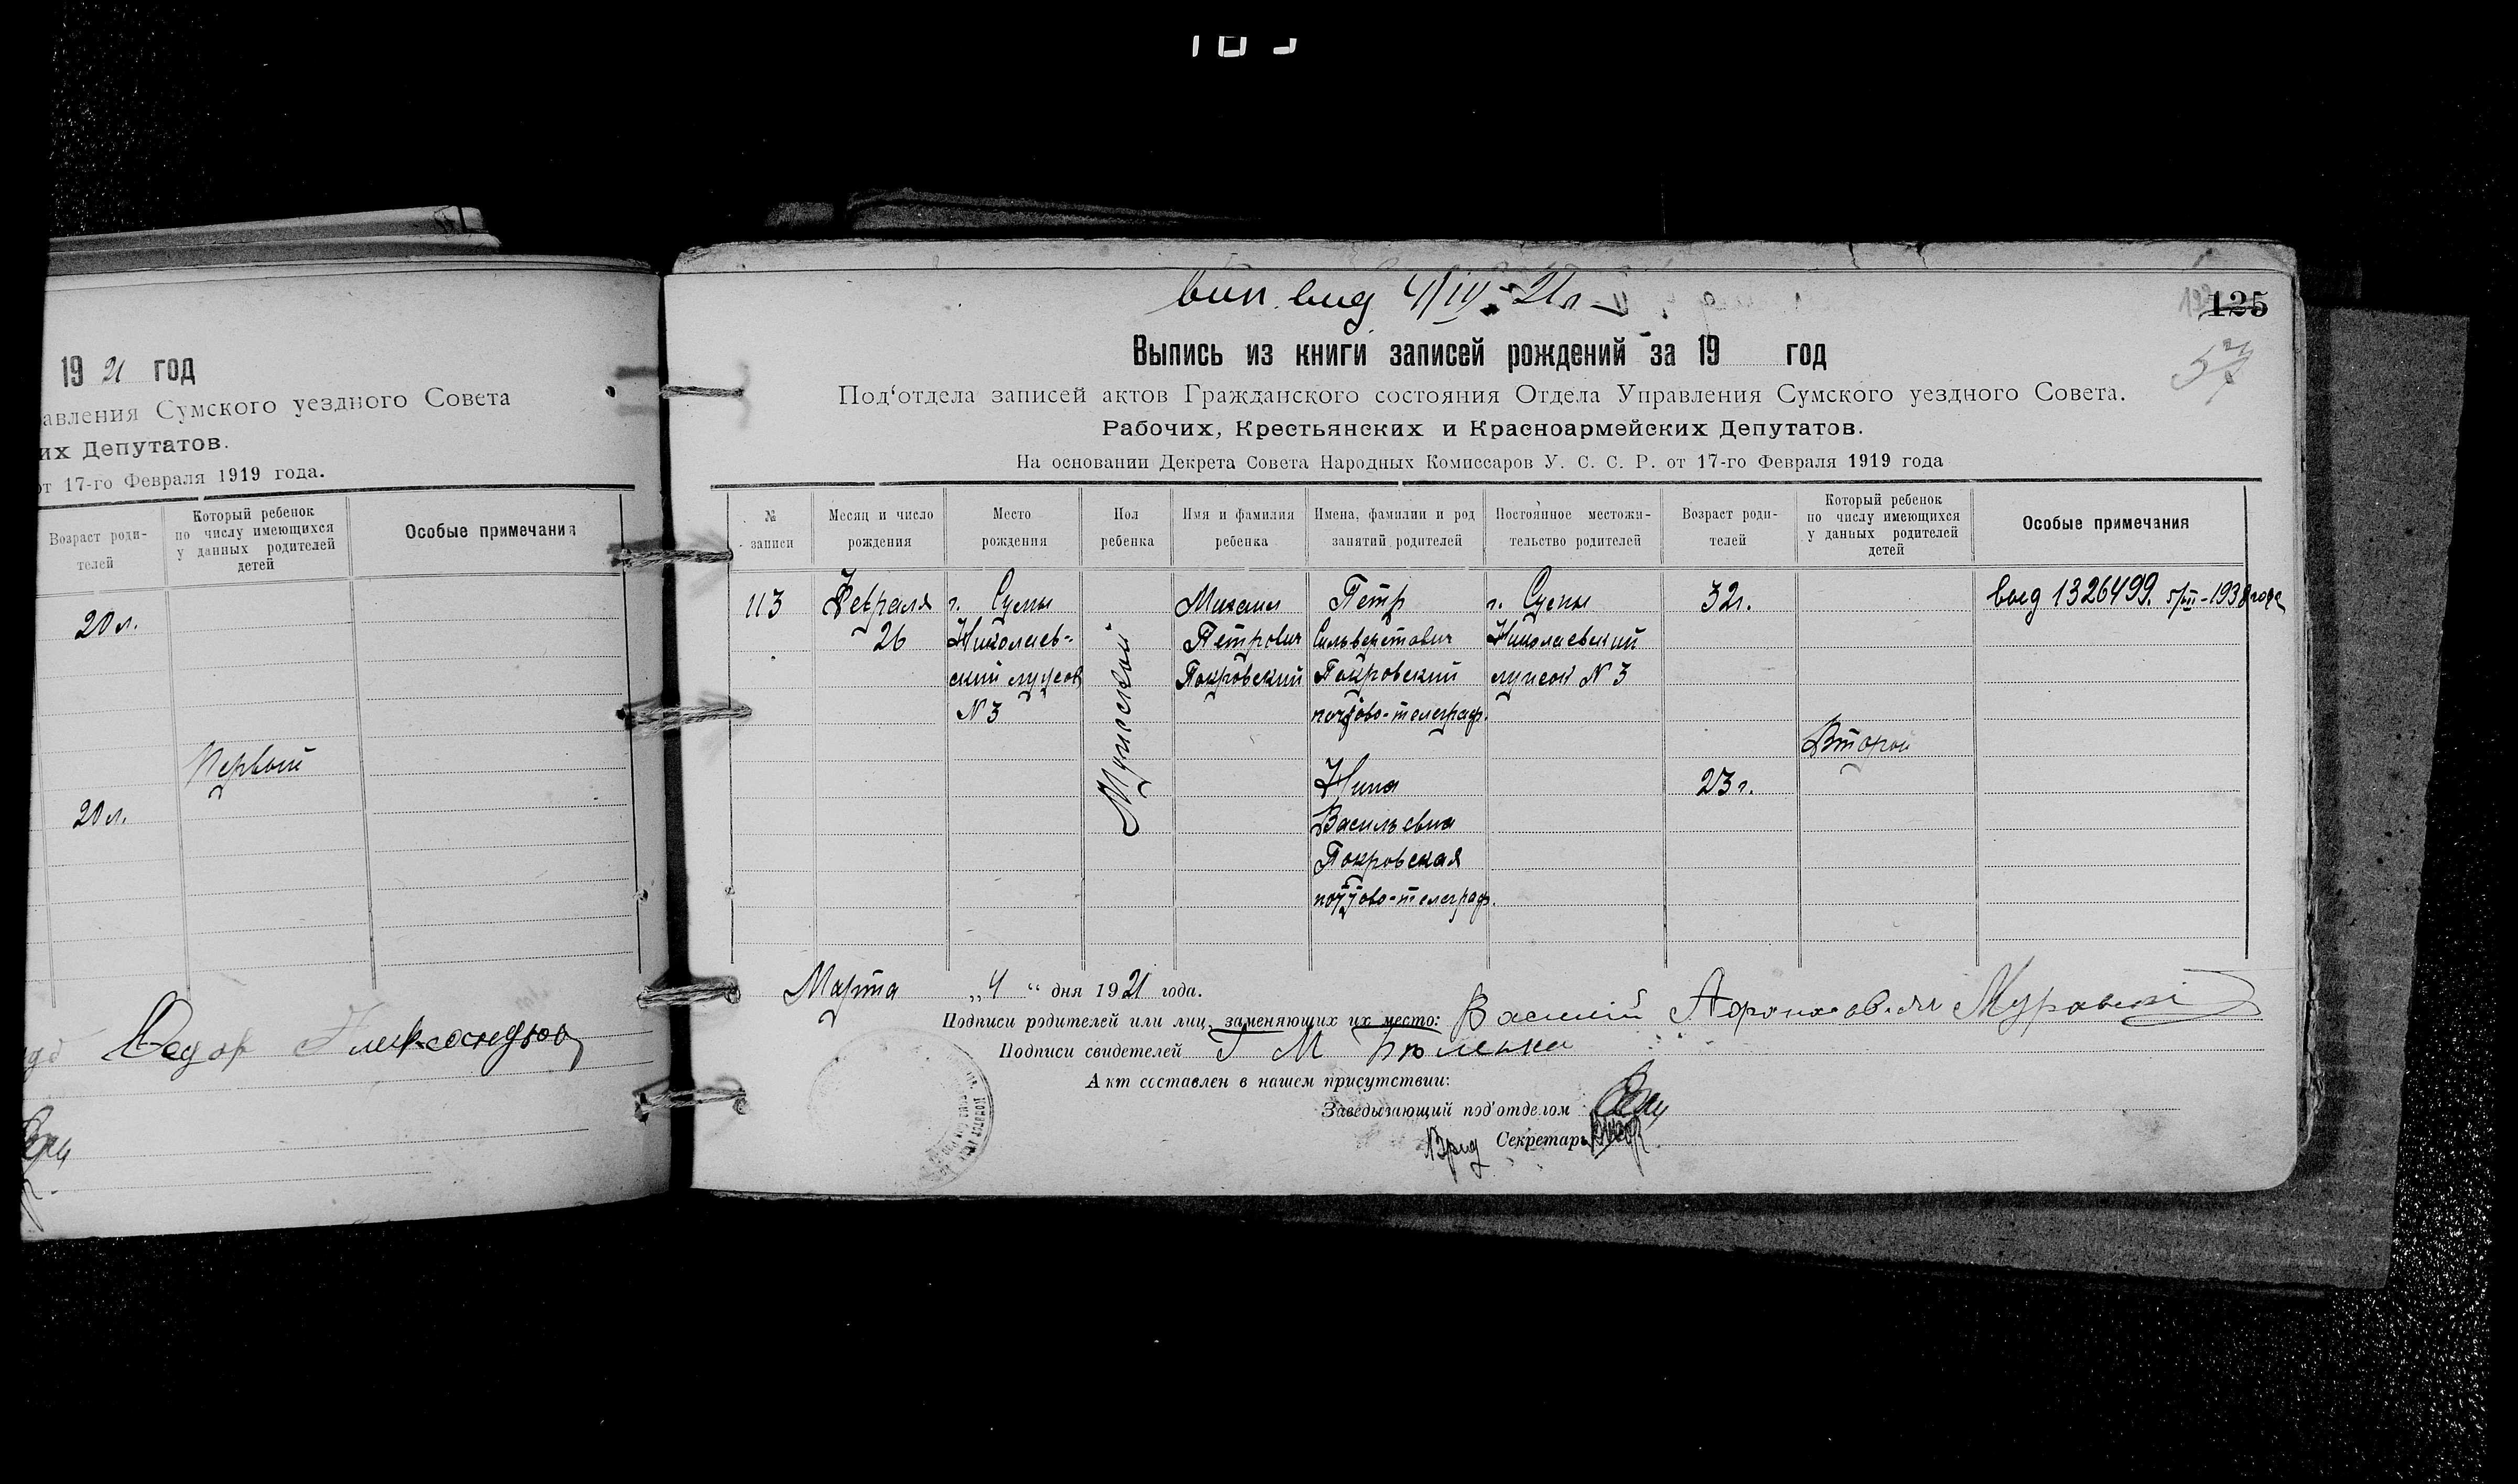 19 21 год
авления Сумского уездного Совета
их Депутатов.
от 17-го Февраля 1919 года.
Возраст роди-
телей
Который ребенок
по числу имеющихся
у данных родителей
детей
Особые примечания
20 л.
Первый
20 л.
Федор
вип. вид 4/IV-21 г.
125
57
Выпись из книги записей рождений за 19 год
Под‘отдела записей актов Гражданского состояния Отдела Управления Сумского уездного Совета.
Рабочих, Крестьянских и Красноармейских Депутатов.
На основании Декрета Совета Народных Комиссаров У. С. С. Р. от 17-го Февраля 1919 года
№
записи
Месяц и число
рождения
Место
рождения
Пол
ребенка
Имя и фамилия
ребенка
Имена, фамилии и род
занятий родителей
Постоянное местожи-
тельство родителей
Возраст роди-
телей
Который ребенок
по числу имеющихся
у данных родителей
детей
Особые примечания
113
Февраля
26
г. Сумы
Николаев-
ский
N 3
Мужской
Михаил
Петрович
Покровский
Петр
Сильвестович
Покровский
почтово-телеграф.
Нина
Васильевна
Покровская
почтово-телеграф.
г. Сумы
Николаевский
N 3
32 г.
23 г.
Второй
выд 1326499. 5/III-1938 года
Марта „4“ дня 1921 года.
Подписи родителей или лиц, заменяющих их место: Василий
Подписи свидетелей Г М
Акт составлен в нашем присутствии:
Заведывающий под‘отделом
Врид Секретарь